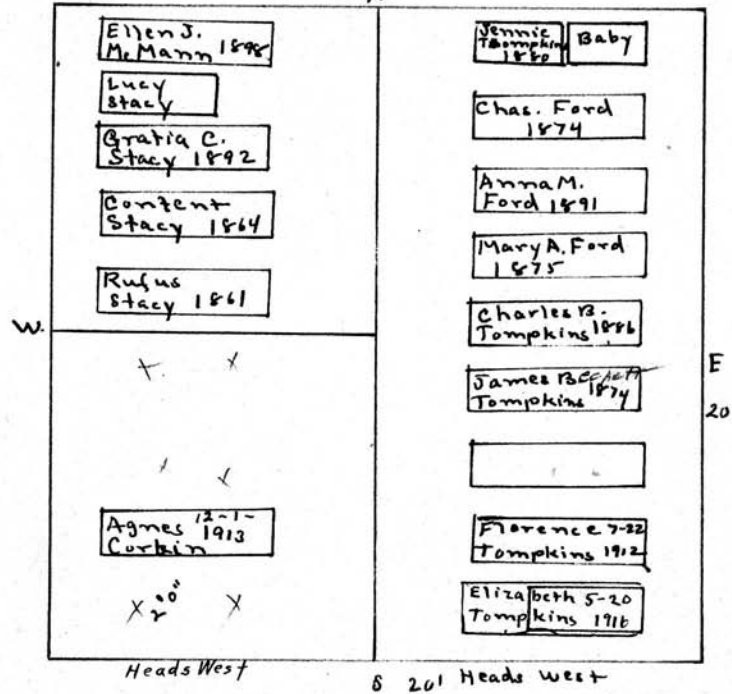 Ellen J.
McMann 1898
Lucy
Stacy
Gratia C.
Stacy 1892
Content
Stacy 1864
Rufus
Stacy 1861
W.
X X
X X
Agnes 12-1-
Corbin 1913
X 2'0" X
Heads West
Jennie
Tompkins
1880
Baby
Chas. Ford
1874
Anna M.
Ford 1891
Mary A. Ford
1875
Charles B.
Tompkins 1886
James B
Tompkins 1874
Florence 7-22
Tompkins 1912
Elizabeth 5-20
Tompkins 1916
E
20
S 20' Heads West